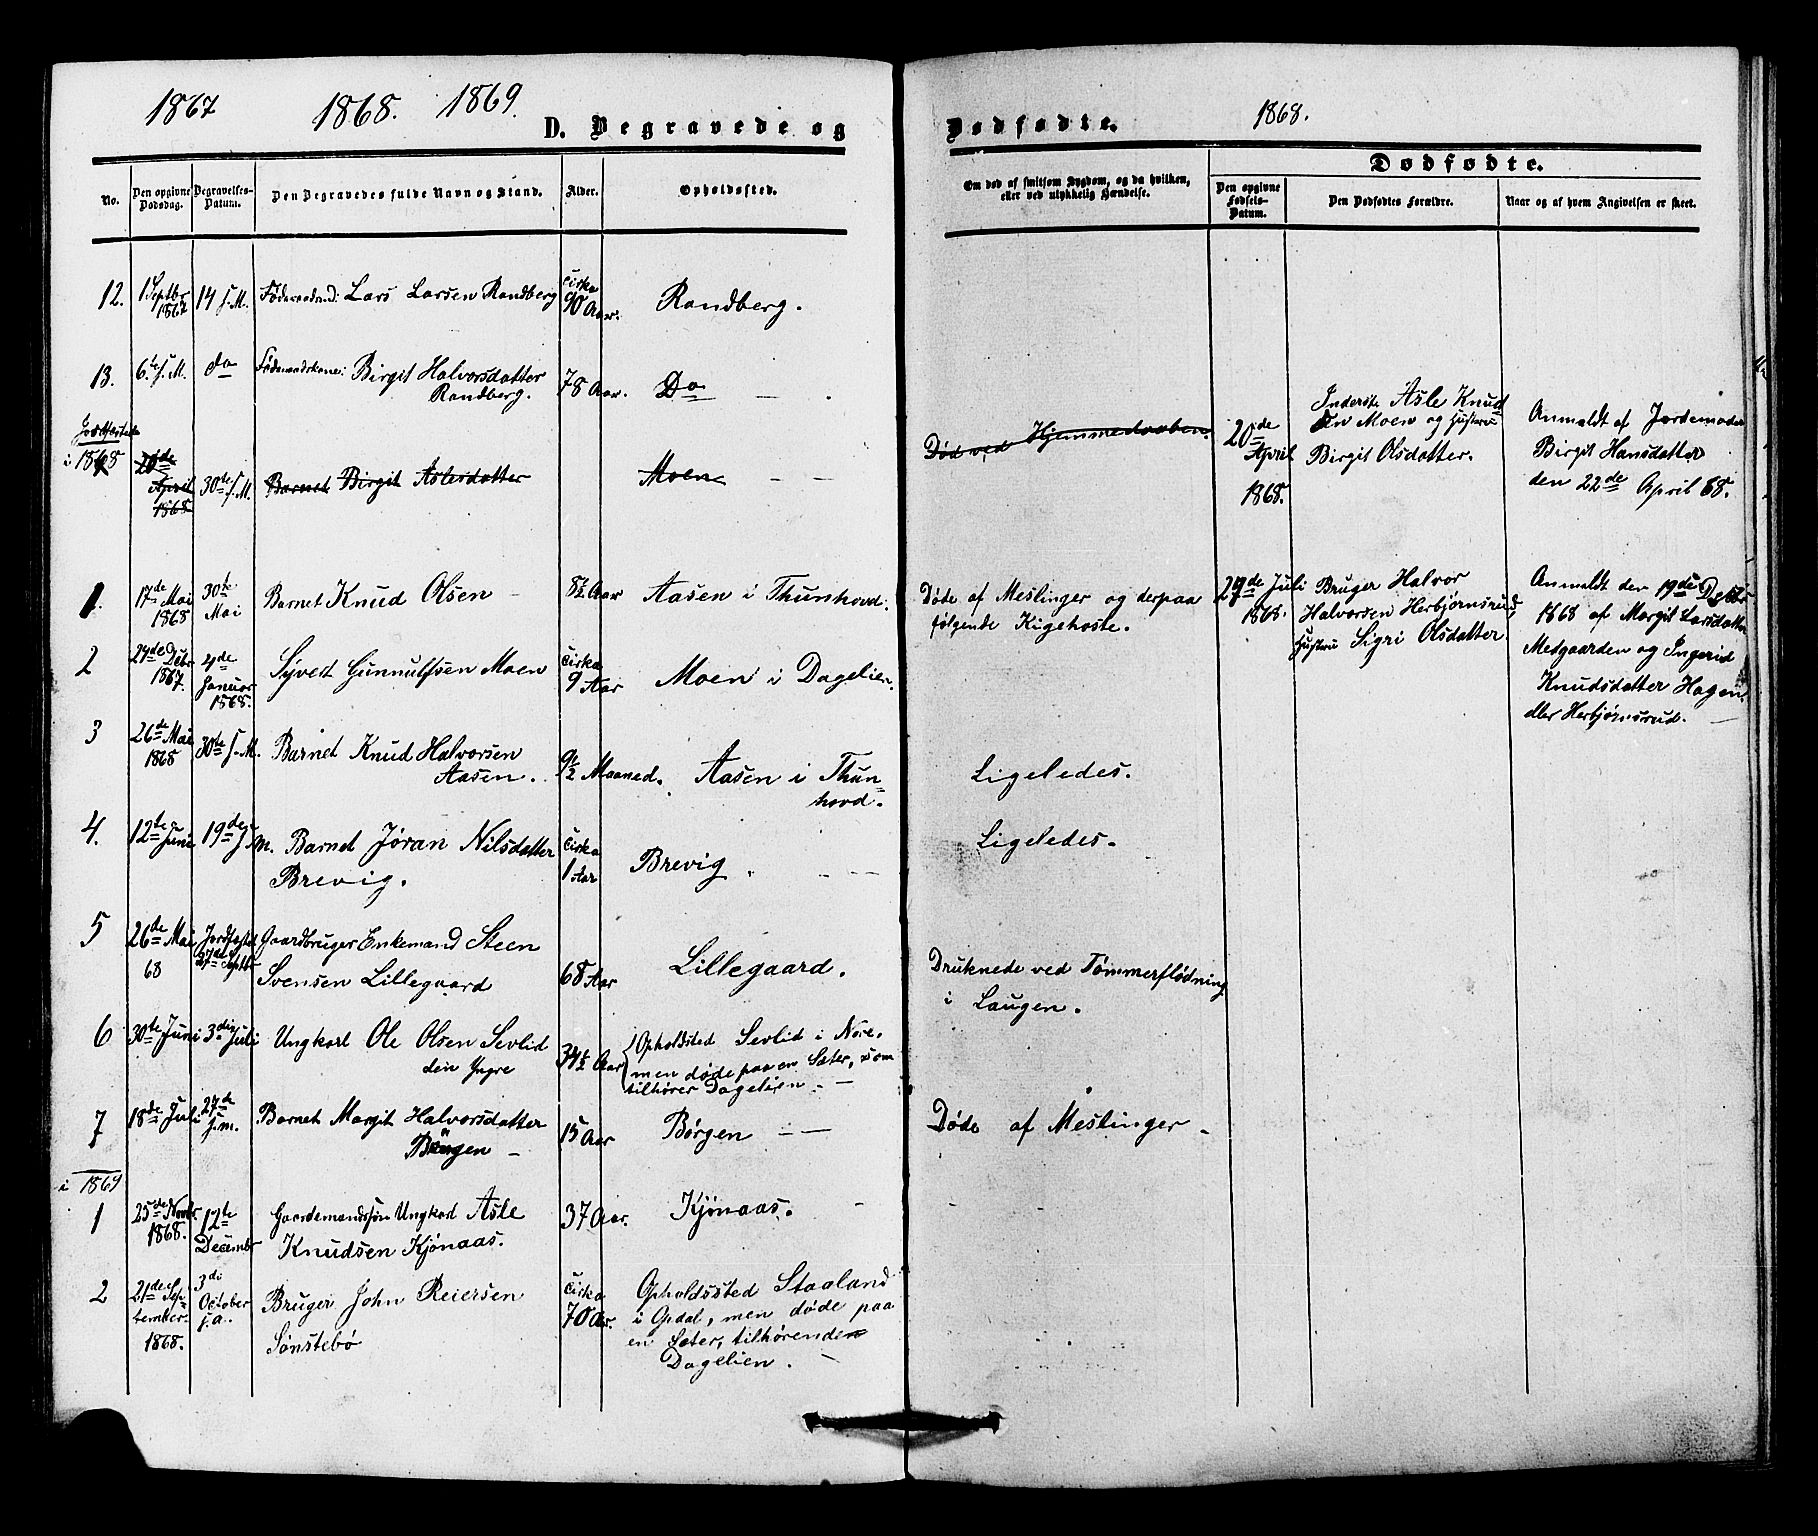 1867 1868. 1869.
D. Begravede og
No.
Den opgivne Dødsdag.
Begravelses-Datum.
Den Begravedes fulde Navn og Stand.
Alder.
Opholdssted.
12. 1 Septbr 1867 14 s. M. Føderaadsmd: Lars Larsen Randberg cirka 90 Aar. Randberg.
13. 6te s. M. do Føderaadskone: Birgit Halvorsdatter
Randberg. 78 Aar. Do
Jordfæstede
i 1868
20de April 1868 30te s. M. Barnet Birgit Aslesdatter Moen
1. 17de Mai 1868 30te Mai Barnet Knud Olsen 8½ Aar Aasen i Thunhovd.
2 24de Debr 1867. 4de Januar 1868. Syvert Gunnulfsen Moen cirka 9 Aar Moen i Dagelien.
3 26de Mai 1868 30te s. M. Barnet Knud Halvorsen
Aasen. 9½ Maaned. Aasen i Thun-
hovd.
4. 12te Juni 19de s. M. Barnet Jøran Nilsdatter
Brevig. cirka 1 Aar Brevig
5 26de Mai 68 Jordfæstet 27de Septbr Gaardbruger Enkemand Steen
Svensen Lillegaard 68 Aar Lillegaard.
6 30te Juni 3die Juli Ungkarl Ole Olsen Sevlid
den Yngre 34½ Aar Opholdsted Sevlid i Nore,
men døde paa en Sæter, som
tilhører Dagelien.
7 18de Juli 27de s. m. Barnet Margit Halvorsdatter
Børgen 15 Aar Børgen
i 1869
1 25de Novbr. 1868. 12te Decembr Gaardmandssøn Ungkarl Asle
Knudsen Kjønaas. 37 Aar. Kjønaas.
2 21de September 1868. 3di October s. a. Bruger John Reiersen
Sønstebø cirka 70 Aar. Opholdssted Staaland
i Opdal, men døde paa
en Sæter, tilhørende
Dagelien.
Dødfødte. 1868.
Om død af smitsom Sygdom, og da hvilken,
eller ved ulykkelig Hændelse.
Dødfødte.
Den opgivne Fødsels-Datum.
Den Dødfødtes Forældre.
Naar og af hvem Angivelsen er skeet.
Død ved Hjemmedaaben.
20de April 1868.
Inderste Asle Knud
sen Moen og Hustru
Birgit Olsdatter.
Anmeldt af Jordemoder
Birgit Hansdatter
den 22de April 68.
Døde af Meslinger og derpaa
følgende Kighoste.
29de Juli 1868.
Bruger Halvor
Halvorsen Herbjørnsrud
Hustru Sigri Olsdatter
Anmeldt den 19de Debr
1868 af Margit Larsdatter
Medgaarden og Ingerid
Knudsdatter Hagen
eller Herbjørnsrud.
Ligeledes.
Ligeledes.
Druknede ved Tømmerflødning
i Laugen.
Døde af Meslinger